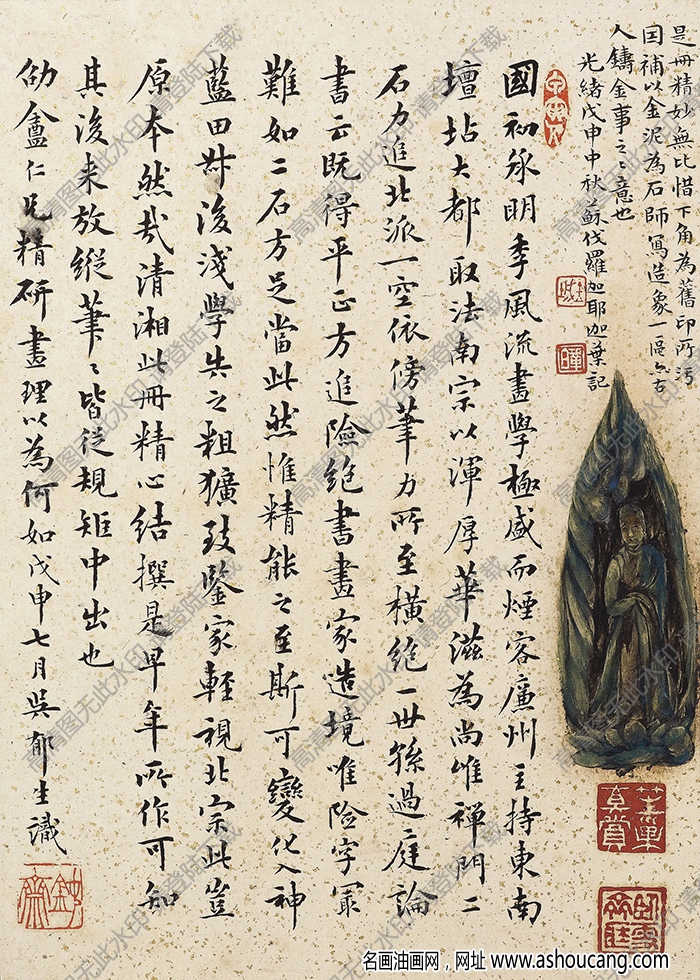 是冊精妙無比惜下角為舊印所污
因補以金泥為石師寫造象一區亦古
人鑄金事之之意也
光緒戊申中秋蘇伐羅迦耶迦葉記
國初承明季風流畫學極盛而煙客廉州主持東南
壇坫大都取法南宗以渾厚華滋為尚惟禪門二
石力追北派一空依傍筆力所至橫絶一世孫過庭論
書云既得平正方追險絶書畫家造境唯險字冣
難如二石方足當此然惟精能之至斯可變化入神
藍田叔後淺學失之粗獷致鑒家輕視北宗此豈
原本然哉清湘此冊精心結撰是早年所作可知
其後来放縱筆筆皆從規矩中出也
劬盦仁兄精研畫理以為何如戊申七月吳郁生識
真賞
高清图无此水印,请登陆下载
名画油画网,网址 www.ashoucang.com